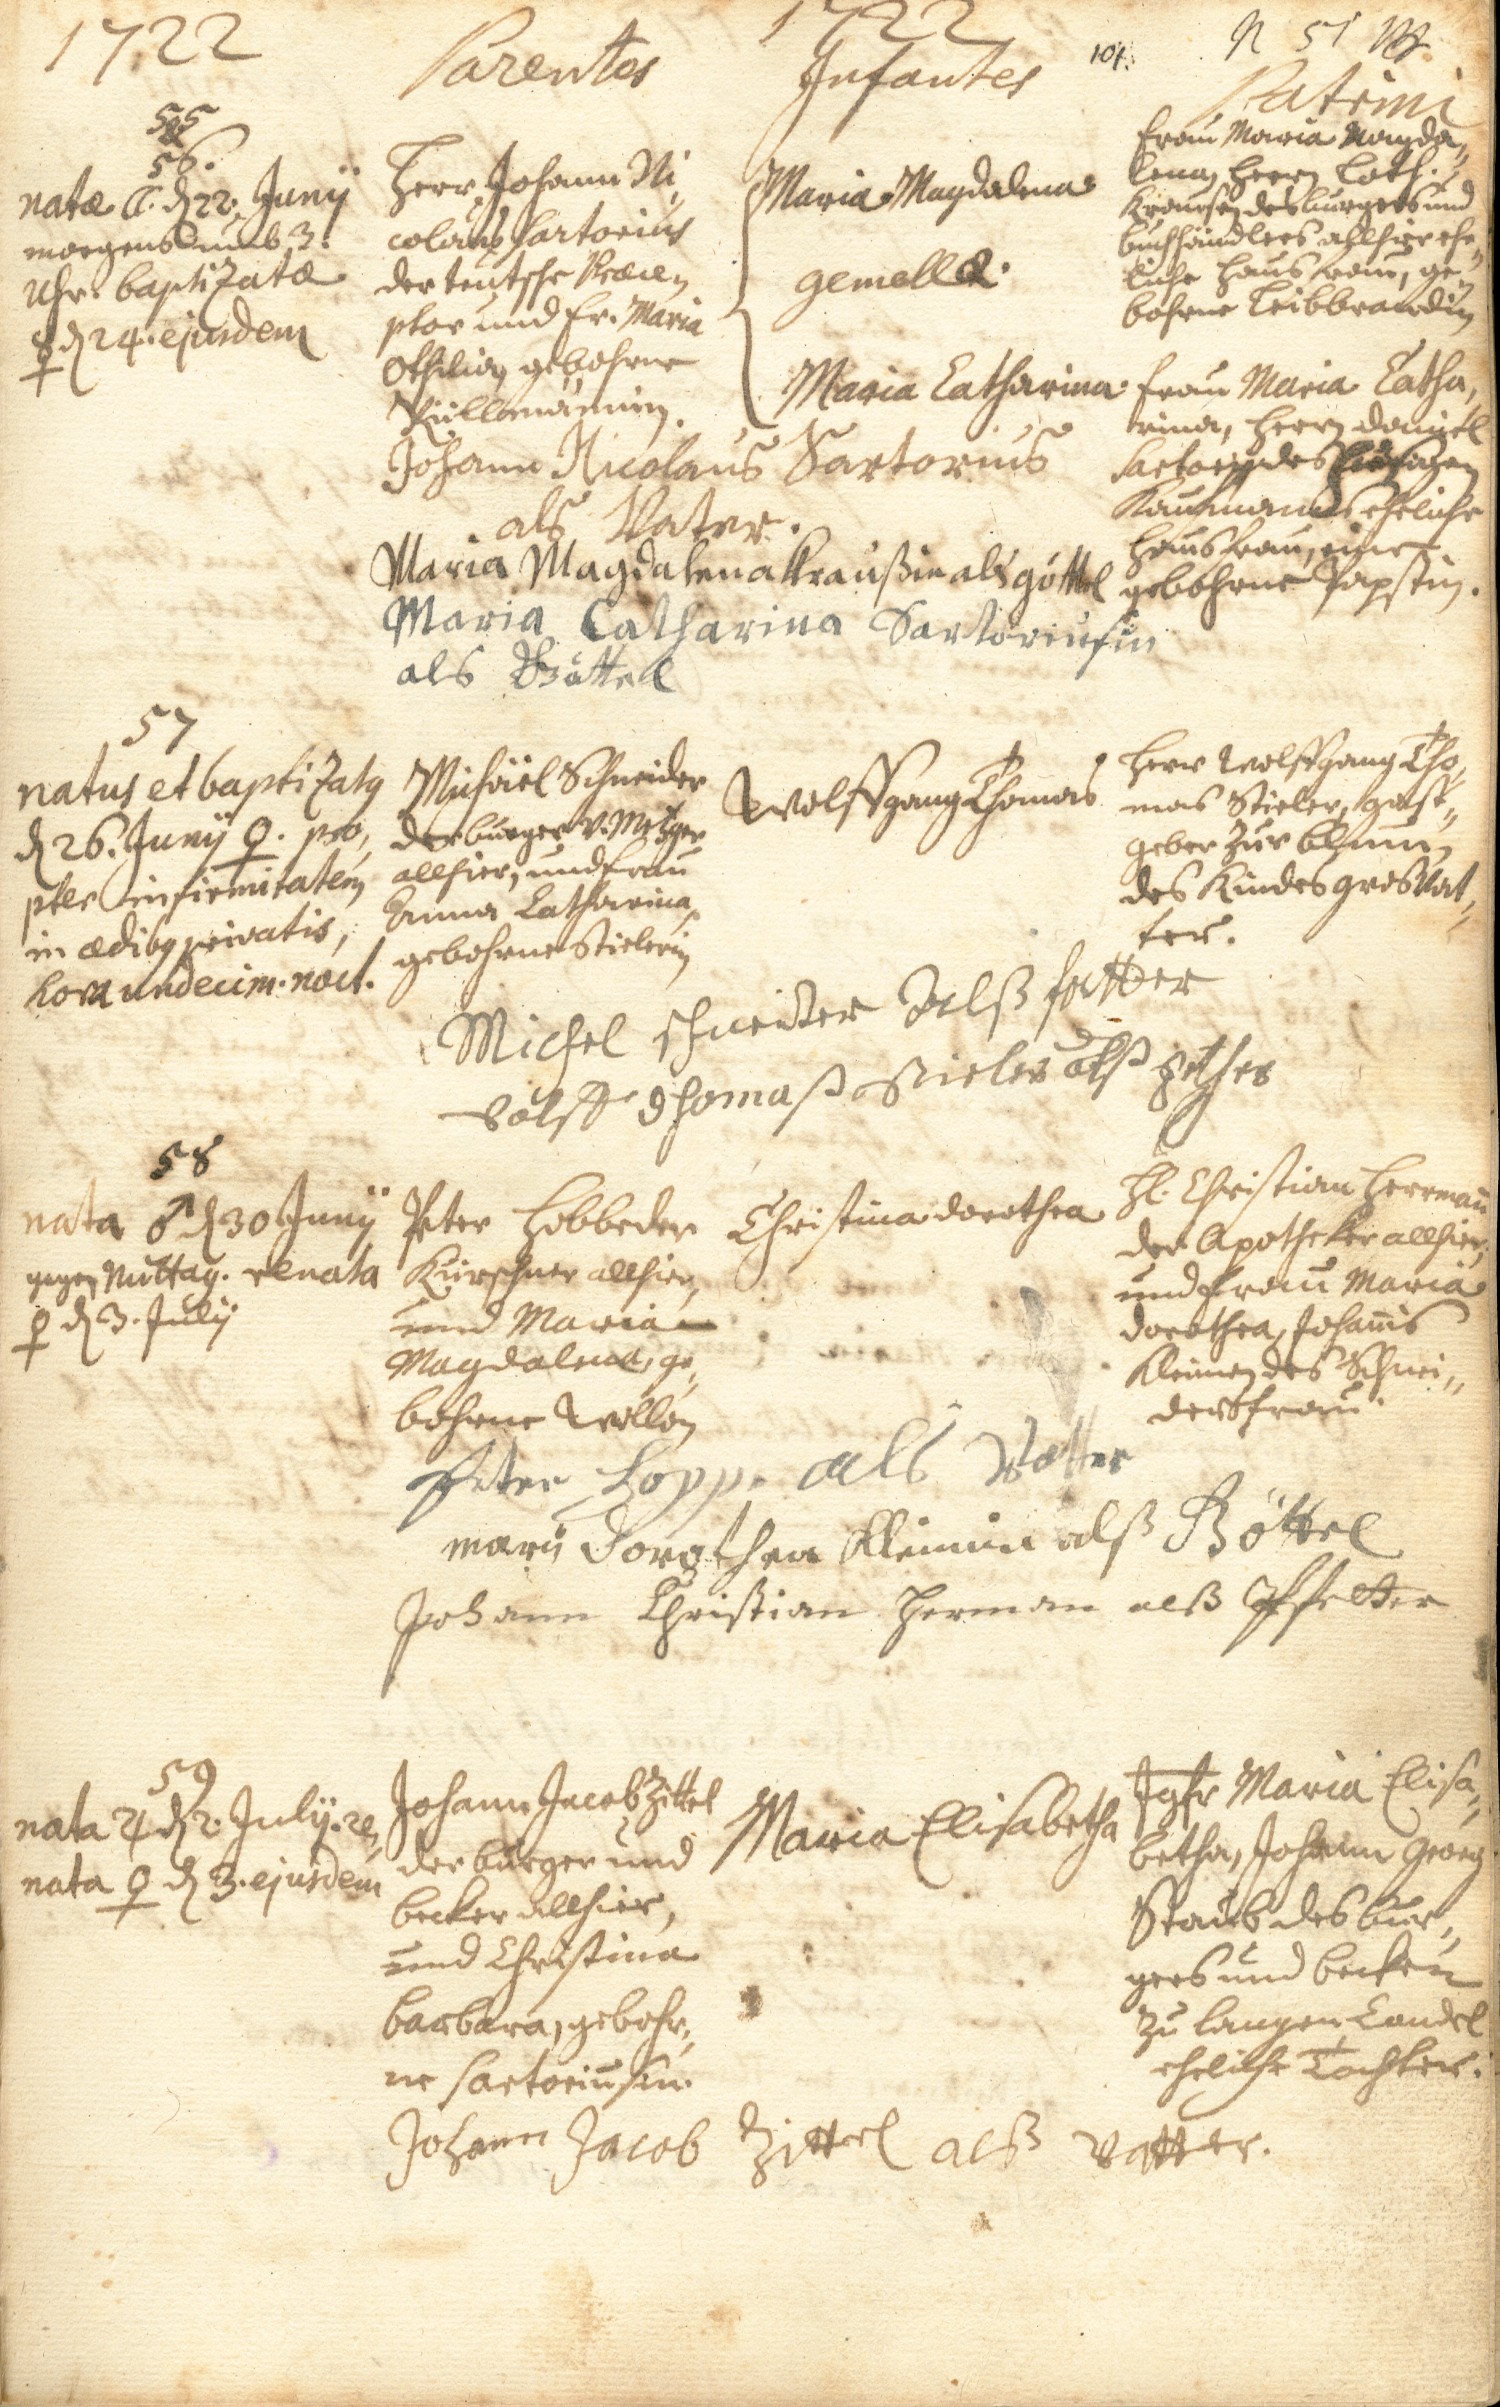 1722 Parentes 1722 Infantes 101. N 51
Patrini
55
56.
natæ ☾. d 22. Junÿ
morgens umb 3.
Uhr. baptizatæ
♀ d 24. ejusdem
Herr Johann Ni,,
colaus Sartorius
der teutsche Præce,,
ptor und Fr. Maria
Othilia, gebohrne
Küllmännin.
Maria Magdalena
gemellæ.
Maria Catharina.
Frau Maria Magda,,
lena, Herrn Loth.
Kraussen des burgers und
buchhändlers allhier ehe,,
liche Hausfrau, ge,,
bohrne Leibbrandin
Frau Maria Catha,,
rina, Herrn Daniel
Sartorii des hiesigen
Kaufmanns eheliche
Hausfrau, eine
gebohrne Papstin.
Johann Nicolaus Sartorius
als Vater.
Maria Magdalena Kraußin als göttel
Maria Catharina Sartoriusin
als Göttel
57
natus et baptizatq
d 26. Junÿ ♀. pro,,
pter infirmitatem
in ædibq privatis,
hora undecim. noct.
Michäel Schneider
der burger v. Metzger
allhier, und Frau
Anna Catharina,
gebohrne Stielerin
Wolffgang Thomas
Herr Wolffgang Tho,,
mas Stieler, gast,,
geber zur blum,
des Kindes grosvat,,
ter.
Michel schneiter alß fatter
Volff Dhomaß Stieler alß
58
nata ♂ d 30 Junÿ
gegen Mittag. renata
♀ d 3. Julÿ
Peter
Kürschner allhier,
und Maria
Magdalena, ge,,
bohrne
Christina Dorothea
H. Christian Herrmañ
der Apotheker allhier,
und Frau Maria
Dorothea, Johañis
Kleinen des Schnei,,
ders frau.
Peter Hopp. als Vatter
Dorothea Kleinin alß Göttel
Johann Christian Herman alß Pfetter
59
nata ♃ d 2. Julÿ. re,,
nata ♀ d 3. ejusdem
Johann Jacob Zittel
der burger und
becker allhier,
und Christina
barbara, gebohr,,
ne Sartoriusin.
Maria Elisabetha
Jgfr Maria Elisa,,
betha, Johann Georg
Staub des bur,,
gers und becken
zu Langen Candel
eheliche Tochter.
Johann Jacob Zittel alß Vatter.